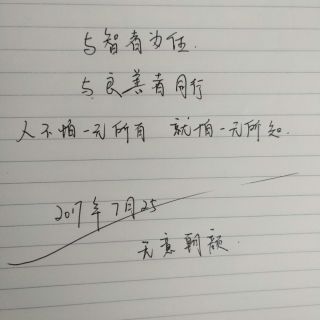 与智者为伍
与良善者同行
人不怕一无所有 就怕一无所知.
2017年7月25
无意朝颜.